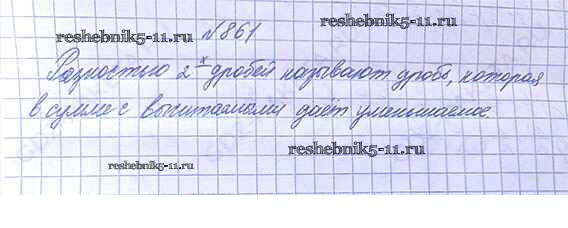 №861
reshebnik5-11.ru
reshebnik5-11.ru
Разностью 2х дробей называют дробь, которая
в сумме с вычитаемыми дает уменьшаемое.
reshebnik5-11.ru
reshebnik5-11.ru